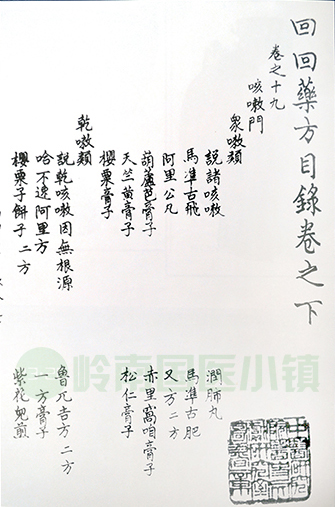 回回藥方目錄卷之下
卷之十九
咳嗽門
衆嗽類
說諸咳嗽 潤肺丸
馬準古飛 馬準古肥
阿里公凡 又方二方
葫蘆芭膏子 赤里窩咱膏子
天竺黃膏子 松仁膏子
櫻粟膏子
乾嗽類
說乾咳嗽因無根源 魯兀吉方二方
哈不逹阿里方 一方膏子
櫻粟子餅子二方 紫花兒煎
岭南国医小镇